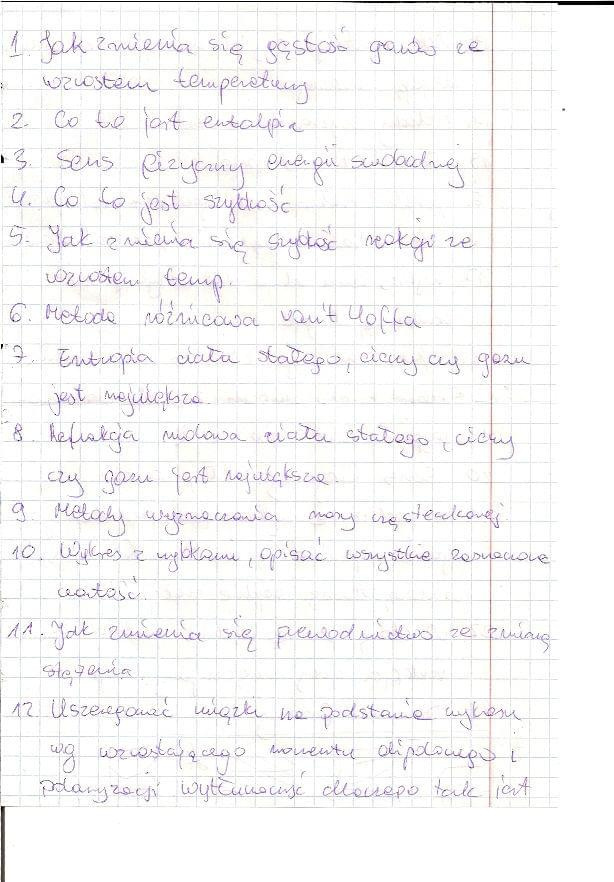 1. Jak zmienia się gęstość gazów ze
wzrostem temperatury
2. Co to jest entalpia
3. Sens fizyczny energii swobodnej
4. Co to jest szybkość
5. Jak zmienia się szybkość reakcji ze
wzrostem temp.
6. Metoda różnicowa van't Hoffa
7. Entropia ciała stałego, cieczy czy gazu
jest największa.
8. Refrakcja molowa ciała stałego, cieczy
czy gazu jest największa.
9. Metody wyznaczania masy cząsteczkowej.
10. Wykres z , opisać wszystkie zaznaczone
wartość.
11. Jak zmienia się przewodnictwo ze zmianą
stężenia.
12. Uszeregować związki na podstawie wykresu
wg wzrastającego momentu dipolowego i
polaryzacji wytłumaczyć dlaczego tak jest